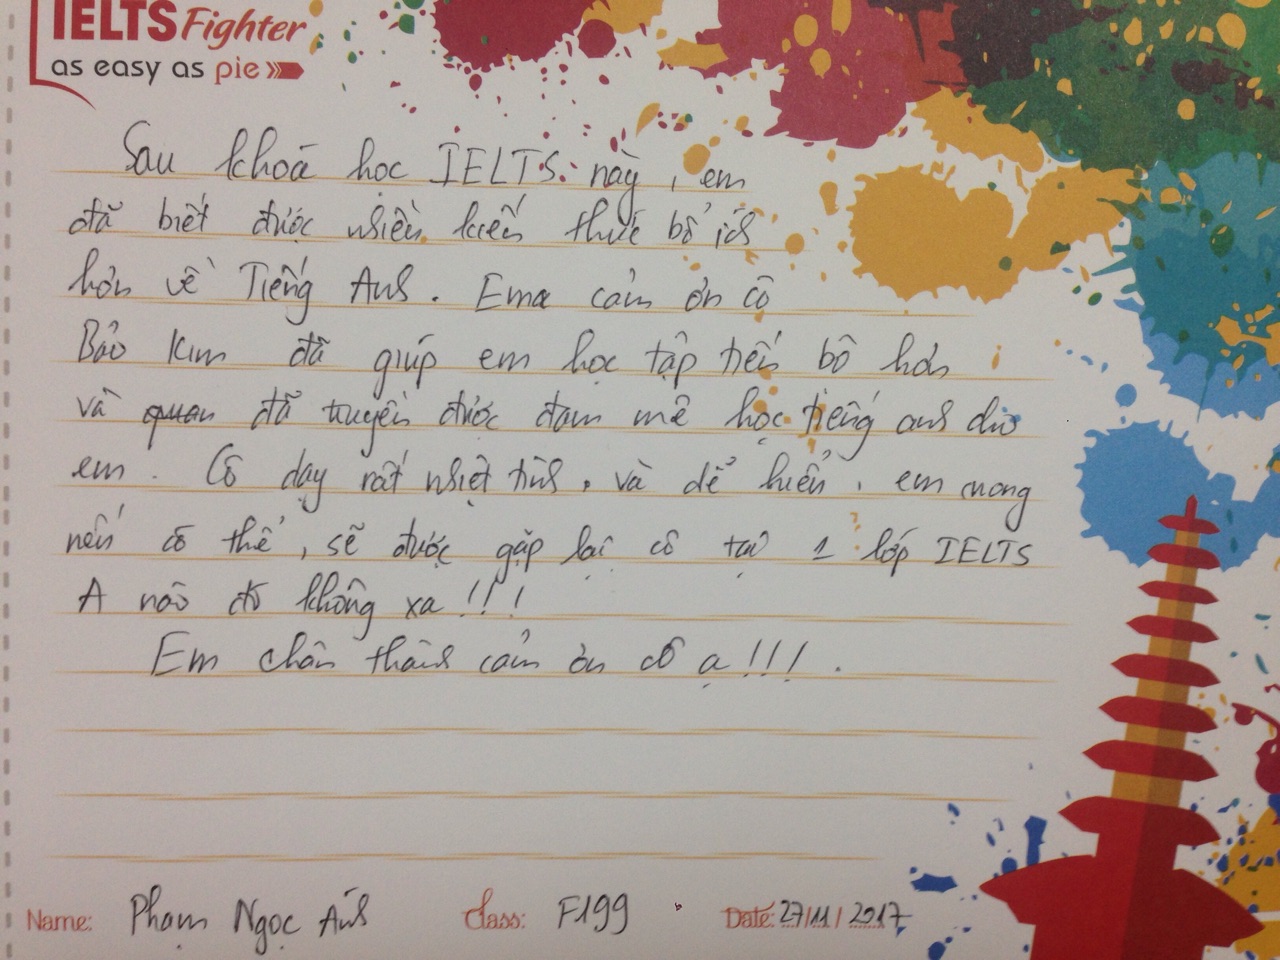 IELTS Fighter
as easy as pie
Sau khoá học IELTS này, em
đã biết được nhiều kiến thức bổ ích
hơn về Tiếng Anh. Em cảm ơn cô
Bảo Kim đã giúp em học tập tiến bộ hơn
và đã truyền được đam mê học tiếng anh cho
em. Cô dạy rất nhiệt tình, và dễ hiểu, em mong
nếu có thể, sẽ được gặp lại cô tại 1 lớp IELTS
A nào đó không xa!!!
Em chân thành cảm ơn cô ạ!!!.
Name: Phạm Ngọc Ánh Class: F199 Date: 27/11/2017